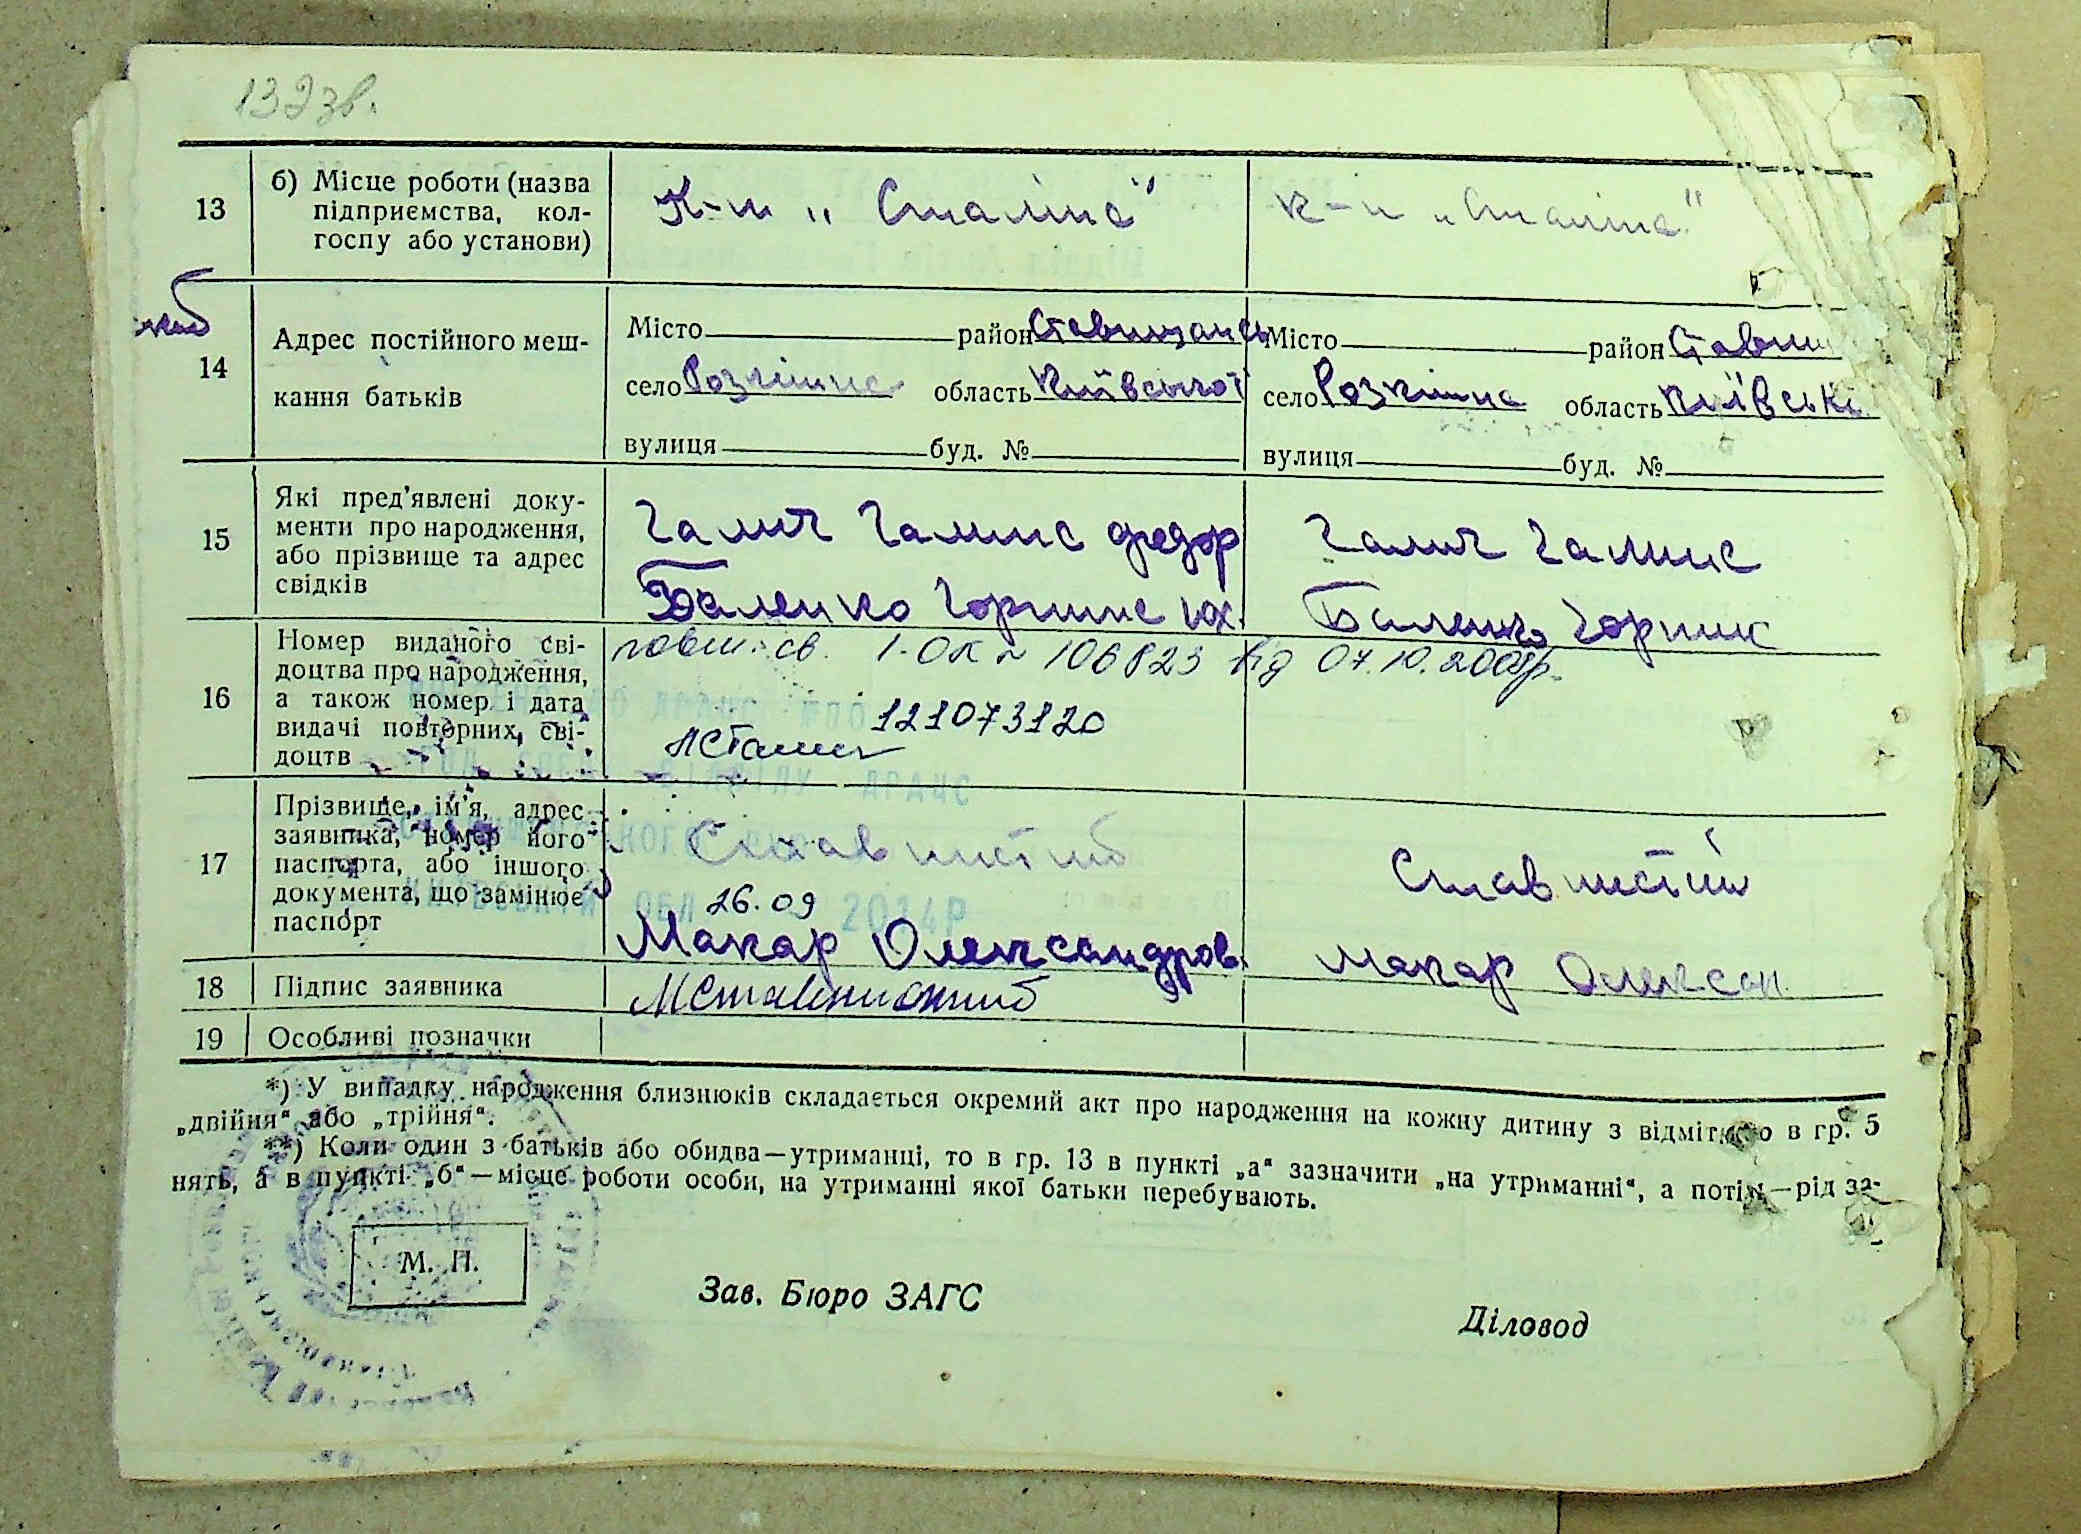 132 зв.
13 б) Місце роботи (назва підприємства, кол-
госпу або установи)
К-п „Сталіна" К-п „Сталіна"
14 Адрес постійного меш-
кання батьків
Місто район Ставищанськ Місто район Ставищ
село Розкішна область Київської село Розкішна область Київські
вулиця буд. № вулиця буд. №
15 Які пред'явлені доку-
менти про народження,
або прізвище та адрес
свідків
Галич Галина Федор Галич Галина
Баленко Горпина Юх. Баленко Горпин
16 Номер виданого сві-
доцтва про народження,
а також номер і дата
видачі повторних сві-
доцтв
повт. св. 1-ОК № 106823 від 07.10.2009р.
121073120
17 Прізвище, ім'я, адрес
заявника, номер його
паспорта, або іншого
документа, що замінює
паспорт
26.09 2014Р
Макар Олександров. Макар Олексан.
18 Підпис заявника
19 Особливі позначки
*) У випадку народження близнюків складається окремий акт про народження на кожну дитину з відміткою в гр. 5
„двійня" або „трійня".
**) Коли один з батьків або обидва—утриманці, то в гр. 13 в пункті „а" зазначити „на утриманні", а потім—рід за-
нять, а в пункті „б"—місце роботи особи, на утриманні якої батьки перебувають.
М. П.
Зав. Бюро ЗАГС
Діловод